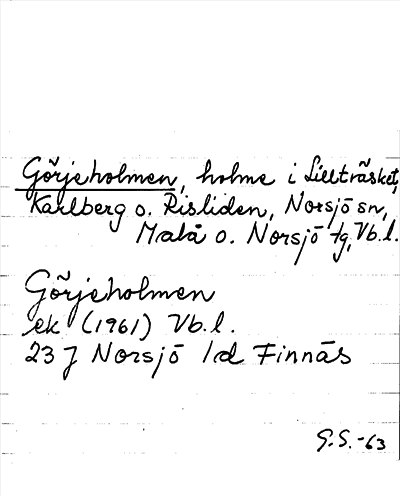 Görjeholmen, holme i Lillträsket,
Karlberg o. Risliden, Norsjö sn,
Malå o. Norsjö tg, Vb.l.
Görjeholmen
ek (1961) Vb.l.
23 J Norsjö 1d Finnäs
G.S. -63